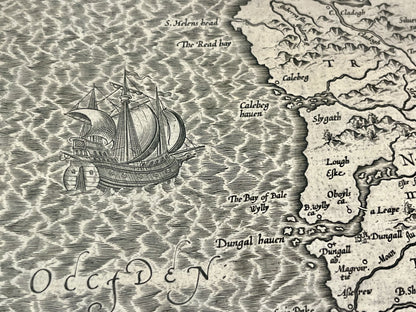 Cladegh
S. Helens head
The Read bay
T R
Calebeg
Calebeg
hauen
Slygath
Lough
Eske
The Bay of Dale
Wylly
B. Wylly
ca.
Oboyls
ca.
N
a Leape
Dungal hauen
Dungall
ab.
Dungall
Magrour
tie
OCCIDEN:
B. Sh